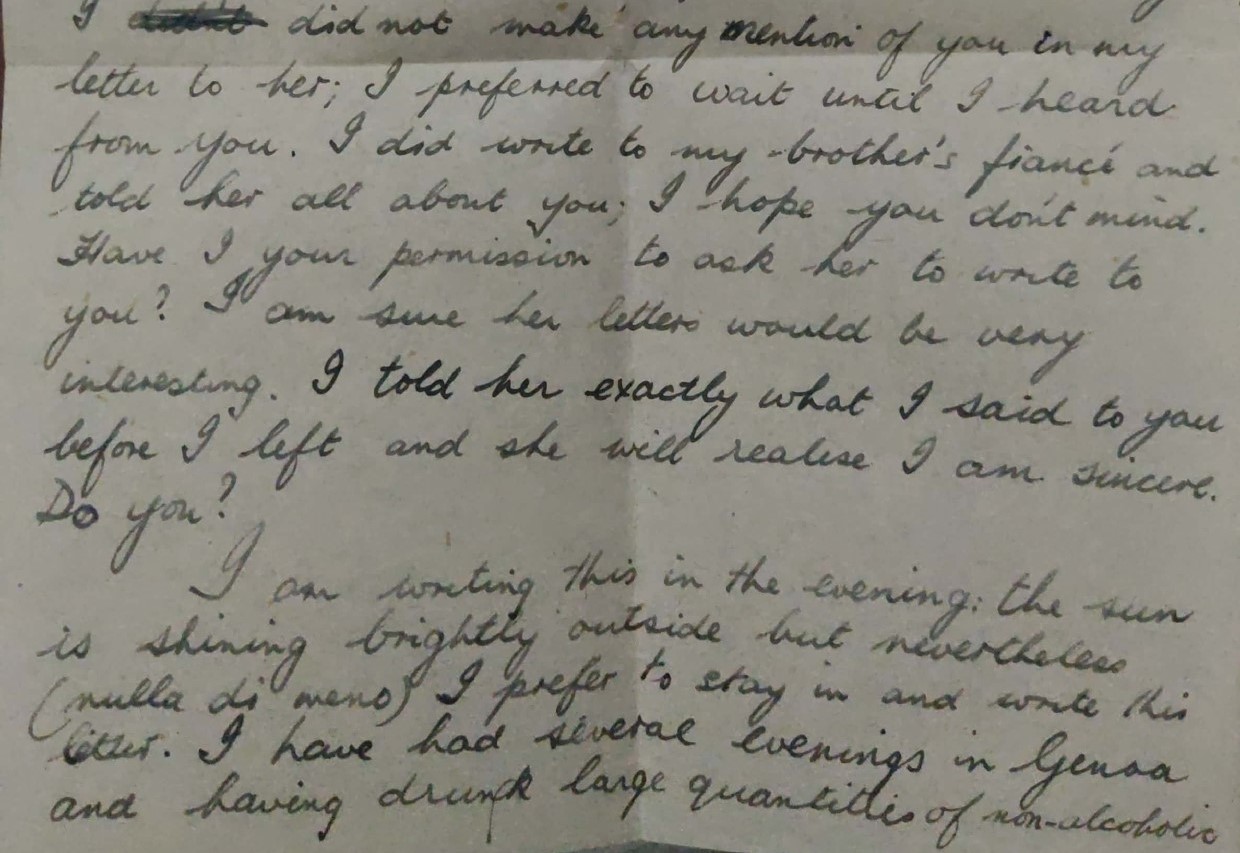 I did not make any mention of you in my
letter to her; I preferred to wait until I heard
from you. I did write to my brother's fiancé and
told her all about you; I hope you don't mind.
Have I your permission to ask her to write to
you? I am sure her letters would be very
interesting. I told her exactly what I said to you
before I left and she will realise I am sincere.
Do you?
I am writing this in the evening: the sun
is shining brightly outside but nevertheless
(nulla di meno) I prefer to stay in and write this
letter. I have had several evenings in Genoa
and having drunk large quantities of non-alcoholic